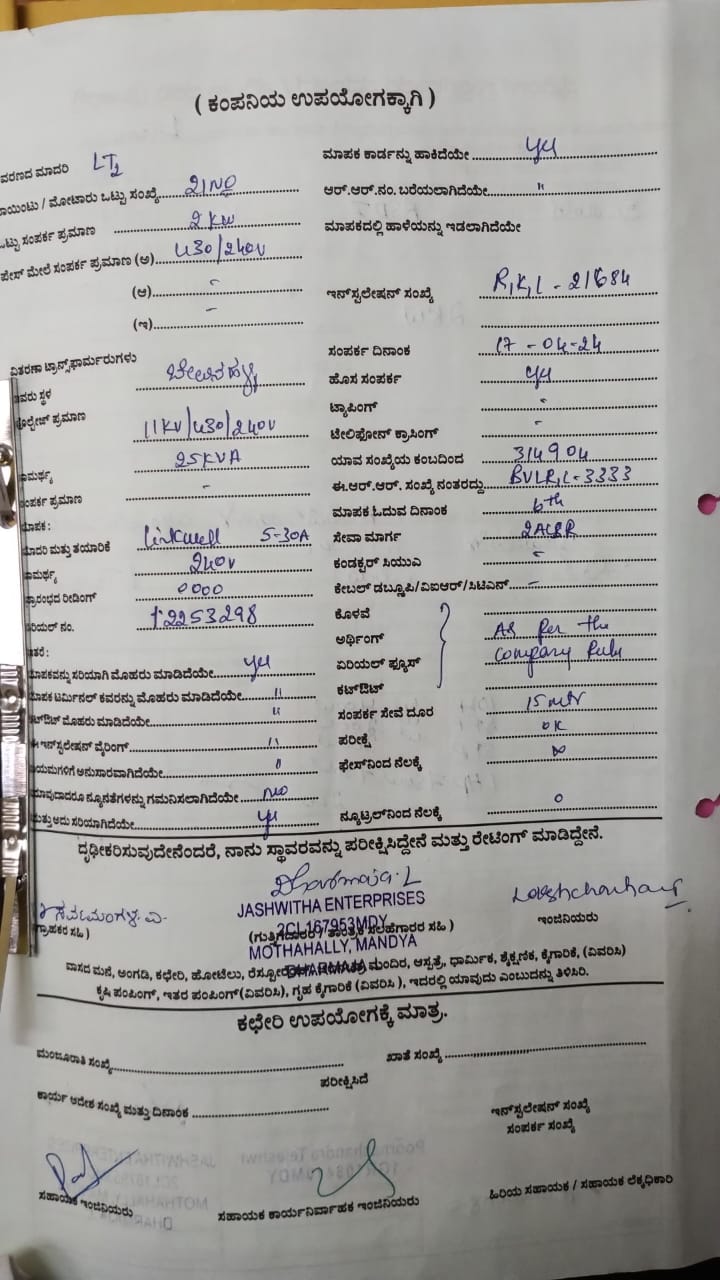 ( ಕಂಪನಿಯ ಉಪಯೋಗಕ್ಕಾಗಿ )
ವರಣದ ಮಾದರಿ LT2
ಮಾಪಕ ಕಾರ್ಡನ್ನು ಹಾಕಿದೆಯೇ yes
ಾಯಿಂಟು / ಮೋಟಾರು ಒಟ್ಟು ಸಂಖ್ಯೆ 21NO
ಆರ್.ಆರ್.ನಂ. ಬರೆಯಲಾಗಿದೆಯೇ "
ಒಟ್ಟು ಸಂಪರ್ಕ ಪ್ರಮಾಣ 2 KW
ಮಾಪಕದಲ್ಲಿ ಹಾಳೆಯನ್ನು ಇಡಲಾಗಿದೆಯೇ
ಫೇಸ್ ಮೇಲೆ ಸಂಪರ್ಕ ಪ್ರಮಾಣ (ಅ) 430/240V
(ಆ) -
ಇನ್‌ಸ್ಟಲೇಷನ್ ಸಂಖ್ಯೆ
(ಇ) -
ವಿತರಣಾ ಟ್ರಾನ್ಸ್‌ಫಾರ್ಮರುಗಳು
ಸಂಪರ್ಕ ದಿನಾಂಕ 17-04-24
ಇವರು ಸ್ಥಳ
ಹೊಸ ಸಂಪರ್ಕ yes
ವೋಲ್ಟೇಜ್ ಪ್ರಮಾಣ 11KV/430/240V
ಟ್ಯಾಪಿಂಗ್ -
ಟೆಲಿಫೋನ್ ಕ್ರಾಸಿಂಗ್ -
ಸಾಮರ್ಥ್ಯ 25KVA
ಯಾವ ಸಂಖ್ಯೆಯ ಕಂಬದಿಂದ 314904
ಸಂಪರ್ಕ ಪ್ರಮಾಣ -
ಈ.ಆರ್.ಆರ್. ಸಂಖ್ಯೆ ನಂತರದ್ದು BVLR,L-3333
ಮಾಪಕ :
ಮಾಪಕ ಓದುವ ದಿನಾಂಕ 6th
ಮಾದರಿ ಮತ್ತು ತಯಾರಿಕೆ Linkwell 5-30A
ಸೇವಾ ಮಾರ್ಗ
ಸಾಮರ್ಥ್ಯ 240V
ಕಂಡಕ್ಟರ್ ಸಿಯುವಿ -
ಪ್ರಾರಂಭದ ರೀಡಿಂಗ್ 0000
ಕೇಬಲ್ ಡಬ್ಲ್ಯೂಪಿ/ವಿಐಆರ್/ಸಿಟಿಎನ್ -
ಸೀರಿಯಲ್ ನಂ. 12253298
ಕೊಳವೆ
ಅರ್ಥಿಂಗ್ As per the
ಇತರೆ :
ಏರಿಯಲ್ ಫ್ಯೂಸ್ company Rule
ಮಾಪಕವನ್ನು ಸರಿಯಾಗಿ ಮೊಹರು ಮಾಡಿದೆಯೇ yes
ಕಟ್‌ಔಟ್
ಮಾಪಕ ಟರ್ಮಿನಲ್ ಕವರನ್ನು ಮೊಹರು ಮಾಡಿದೆಯೇ "
ಸಂಪರ್ಕ ಸೇವೆ ದೂರ 15 mtr
ಕಟ್‌ಔಟ್ ಮೊಹರು ಮಾಡಿದೆಯೇ "
ಪರೀಕ್ಷೆ OK
ಈ ಇನ್‌ಸ್ಟಲೇಷನ್ ವೈರಿಂಗ್ "
ಫೇಸ್‌ನಿಂದ ನೆಲಕ್ಕೆ ∞
ನಿಯಮಗಳಿಗೆ ಅನುಸಾರವಾಗಿದೆಯೇ "
ಯಾವುದಾದರೂ ನ್ಯೂನತೆಗಳನ್ನು ಗಮನಿಸಲಾಗಿದೆಯೇ no
ನ್ಯೂಟ್ರಲ್‌ನಿಂದ ನೆಲಕ್ಕೆ 0
ಮತ್ತು ಅದು ಸರಿಯಾಗಿದೆಯೇ yes
ದೃಢೀಕರಿಸುವುದೇನೆಂದರೆ, ನಾನು ಸ್ಥಾವರವನ್ನು ಪರೀಕ್ಷಿಸಿದ್ದೇನೆ ಮತ್ತು ರೇಟಿಂಗ್ ಮಾಡಿದ್ದೇನೆ.
Dharmaraja.L
JASHWITHA ENTERPRISES
ಸರ್ವಮಂಗಳ.ವಿ
2CL167953MDY
ಗ್ರಾಹಕರ ಸಹಿ )
(ಗುತ್ತಿಗೆದಾರರ / ತಾಂತ್ರಿಕ ಸಲಹೆಗಾರರ ಸಹಿ )
ಇಂಜಿನಿಯರು
MOTHAHALLY, MANDYA
ವಾಸದ ಮನೆ, ಅಂಗಡಿ, ಕಛೇರಿ, ಹೋಟೆಲು, ಮಂದಿರ, ಆಸ್ಪತ್ರೆ, ಧಾರ್ಮಿಕ, ಶೈಕ್ಷಣಿಕ, ಕೈಗಾರಿಕೆ, (ವಿವರಿಸಿ)
ಕೃಷಿ ಪಂಪಿಂಗ್, ಇತರ ಪಂಪಿಂಗ್(ವಿವರಿಸಿ), ಗೃಹ ಕೈಗಾರಿಕೆ (ವಿವರಿಸಿ ), ಇದರಲ್ಲಿ ಯಾವುದು ಎಂಬುದನ್ನು ತಿಳಿಸಿರಿ.
ಕಛೇರಿ ಉಪಯೋಗಕ್ಕೆ ಮಾತ್ರ.
ಮಂಜೂರಾತಿ ಸಂಖ್ಯೆ
ಖಾತೆ ಸಂಖ್ಯೆ
ಪರೀಕ್ಷಿಸಿದೆ
ಕಾರ್ಯ ಆದೇಶ ಸಂಖ್ಯೆ ಮತ್ತು ದಿನಾಂಕ
ಇನ್‌ಸ್ಟಲೇಷನ್ ಸಂಖ್ಯೆ
ಸಂಪರ್ಕ ಸಂಖ್ಯೆ
ಸಹಾಯಕ ಇಂಜಿನಿಯರು
ಸಹಾಯಕ ಕಾರ್ಯನಿರ್ವಾಹಕ ಇಂಜಿನಿಯರು
ಹಿರಿಯ ಸಹಾಯಕ / ಸಹಾಯಕ ಲೆಕ್ಕಾಧಿಕಾರಿ